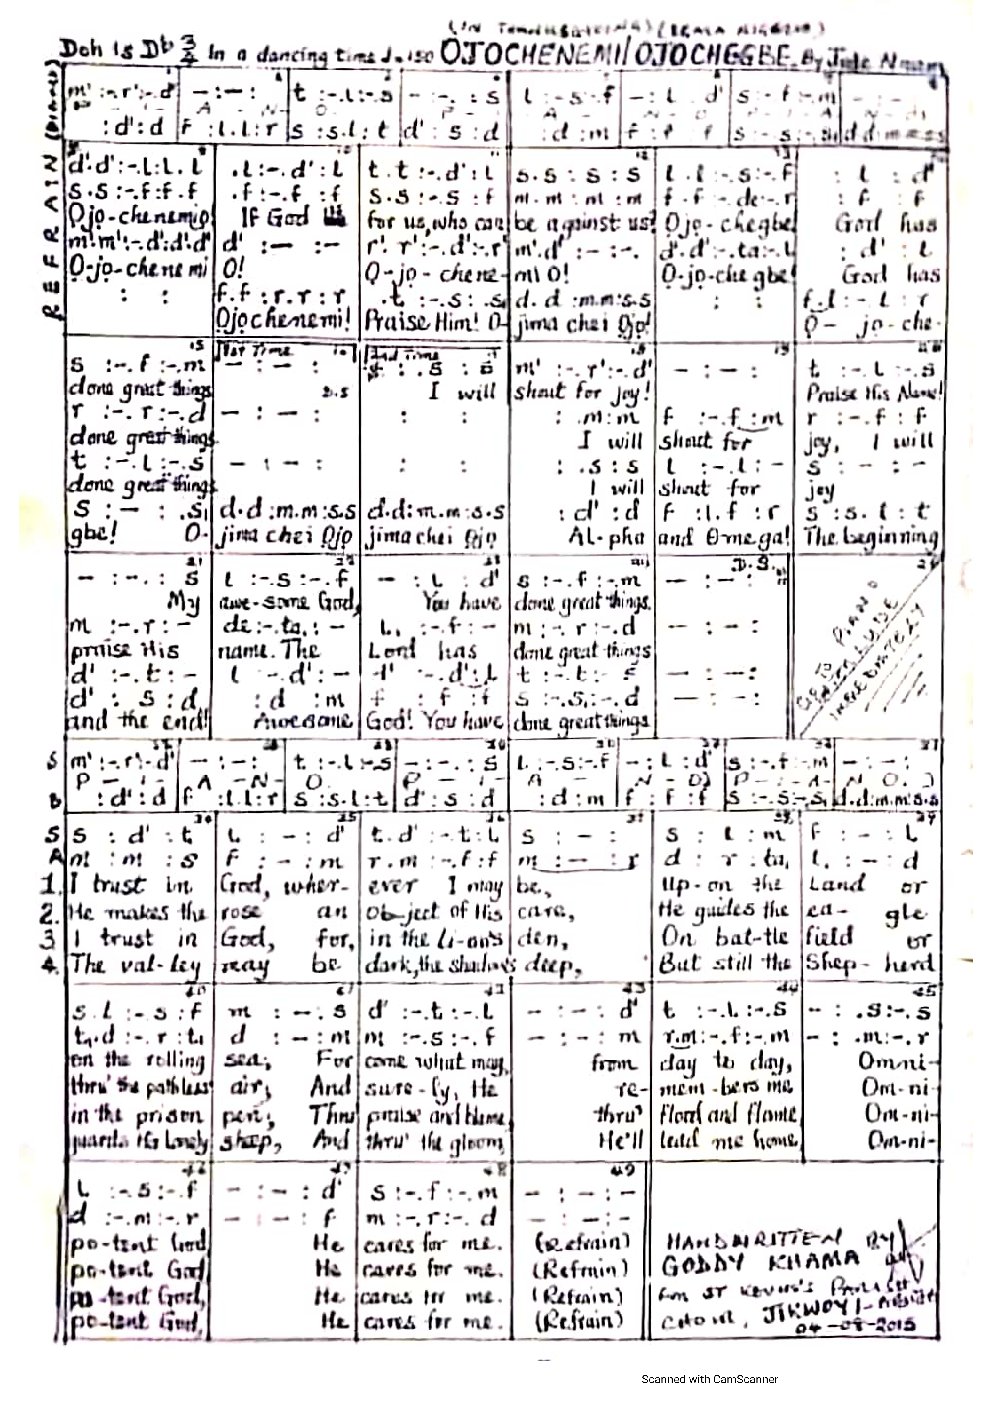 Doh is Db 3/4 In a dancing time OJOCHENEMI/OJOCHEGBE. By Jude
m' :-.r':-.d' - :-: t :-.l:-.s - :-. : s l :-s:-.f - : l . d' s :-.f:-.m - : - :
P I A N O P I A N O
: d' : d f : l.l : r s : s.l : t d' : s : d : d : m f : f : f
REFRAIN
d'.d' :-.l:l.l .l :-.d' : l t.t :-.d' : l s.s : s : s l.l :-.s:-.f : l : d'
s.s :-.f:f.f .f :-.f : f s.s :-.s : f m.m : m : m f.f :-.de:-.r : f : f
Ojo-chenemi! If God for us, who can be against us! Ojo-chegbe! God has
m'.m':-.d':d'.d' d' : — : - r'.r':-.d':-.r' m'.d' : — : -. d'.d':-.ta:-.l : d' : l
O-jo-chenemi O! O-jo-chene-mi O! O-jo-chegbe! God has
: : f.f : r.r : r .t :-.s : .s d.d : m.m : s.s : : f.l :-.l : r
Ojochenemi! Praise Him! O-jima chei Ojo! O-jo-che-
s :-.f :-.m 1st Time - : - : 2nd Time : .s : s m' :-.r':-.d' - : - : t :-.l :-.s
done great things D.S I will shout for joy! Praise His Name!
r :-.r :-.d - : - : : : : .m : m f :-.f : m r :-.f : f
done great things. I will shout for joy, I will
t :-.l :-.s - : - : : : : .s : s l :-.l : - s : - : -
done great things I will shout for joy
s : — : .s, d.d : m.m : s.s d.d : m.m : s.s : d' : d f : l.f : r s : s.l : t
gbe! O- jima chei Ojo jima chei Ojo Al-pha and Omega! The beginning
- : -. : s l :-.s :-.f - : l : d' s :-.f :-.m - : - : D.S.
My awe-some God, You have done great things.
m :-.r : - de :-.ta, : - l, :-.f : - m :-.r :-.d - : - :
praise His name. The Lord has done great things
d' :-.t : - l :-.d' : - :-.d' : l t :-.t : - s - : - :
d' : s : d : d : m f : f : f s :-.s, :-.d
and the end! Awesome God! You have done great things.
GO TO PIANO INTERLUDE IMMEDIATELY
S m' :-.r':-.d' - : - : t :-.l :-.s - : -. : s l :-.s:-.f - : l : d' s :-.f :-.m - : - :
P I A N O P I A N O P I A N O
B : d' : d f : l.l : r s : s.l : t d' : s : d : d : m f : f : f s :-.s :-.s, d.d:m.m:s.s
S s : d' : t l : - : d' t.d' :-.t : l s : - : s : l : m f : - : l
A m : m : s f : - : m r.m :-.f : f m : — : r d : r : ta, l, : - : d
1. I trust in God, wher-ever I may be, Up-on the Land or
2. He makes the rose an ob-ject of His care, He guides the ea-gle
3 I trust in God, for, in the li-on's den, On bat-tle field or
4. The val-ley may be dark, the shadows deep, But still the Shep-herd
s.l :-.s : f m : - : s d' :-.t :-.l - : - : d' t :-.l :-.s - : .s :-.s
t,.d :-.r : t, d : - : m m :-.s :-.f - : - : m r.m :-.f :-.m - : .m :-.r
on the rolling sea; For come what may, from day to day, Omni-
thru' the pathless air; And sure-ly, He re-mem-bers me Om-ni-
in the prison pen; Thru praise and blame, thru' flood and flame, Om-ni-
guards His lonely sheep, And thru' the gloom, He'll lead me home, Om-ni-
l :-.s :-.f - : - : d' s :-.f :-.m - : - : -
d :-.m :-.r - : - : f m :-.r :-.d - : - : -
po-tent God, He cares for me. (Refrain)
po-tent God He cares for me. (Refrain)
po-tent God, He cares for me. (Refrain)
po-tent God, He cares for me. (Refrain)
HANDWRITTEN BY
GODDY KHAMA
ST KEVIN'S PARISH
CHOIR, JIKWOYI-
04-08-2015
Scanned with CamScanner